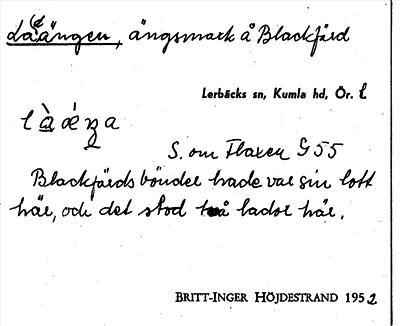 La(d)ängen, ängsmark å Blackfärd
Lerbäcks sn, Kumla hd, Ör. l
l à ǽ ŋ a
S. om Flaxen G 55
Blackfärds bönder hade var sin lott
här, och det stod två lador här.
BRITT-INGER HÖJDESTRAND 1952